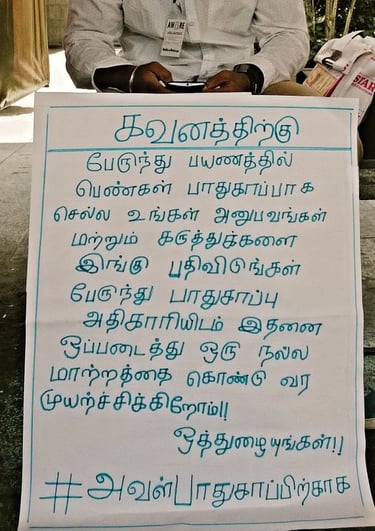 AWARE
கவனத்திற்கு
பேருந்து பயணத்தில்
பெண்கள் பாதுகாப்பாக
செல்ல உங்கள் அனுபவங்கள்
மற்றும் கருத்துக்களை
இங்கு பதிவிடுங்கள்
பேருந்து பாதுகாப்பு
அதிகாரியிடம் இதனை
ஒப்படைத்து ஒரு நல்ல
மாற்றத்தை கொண்டு வர
முயற்ச்சிக்கிறோம்!!
ஒத்துழையுங்கள்!!
#அவள்பாதுகாப்பிற்காக